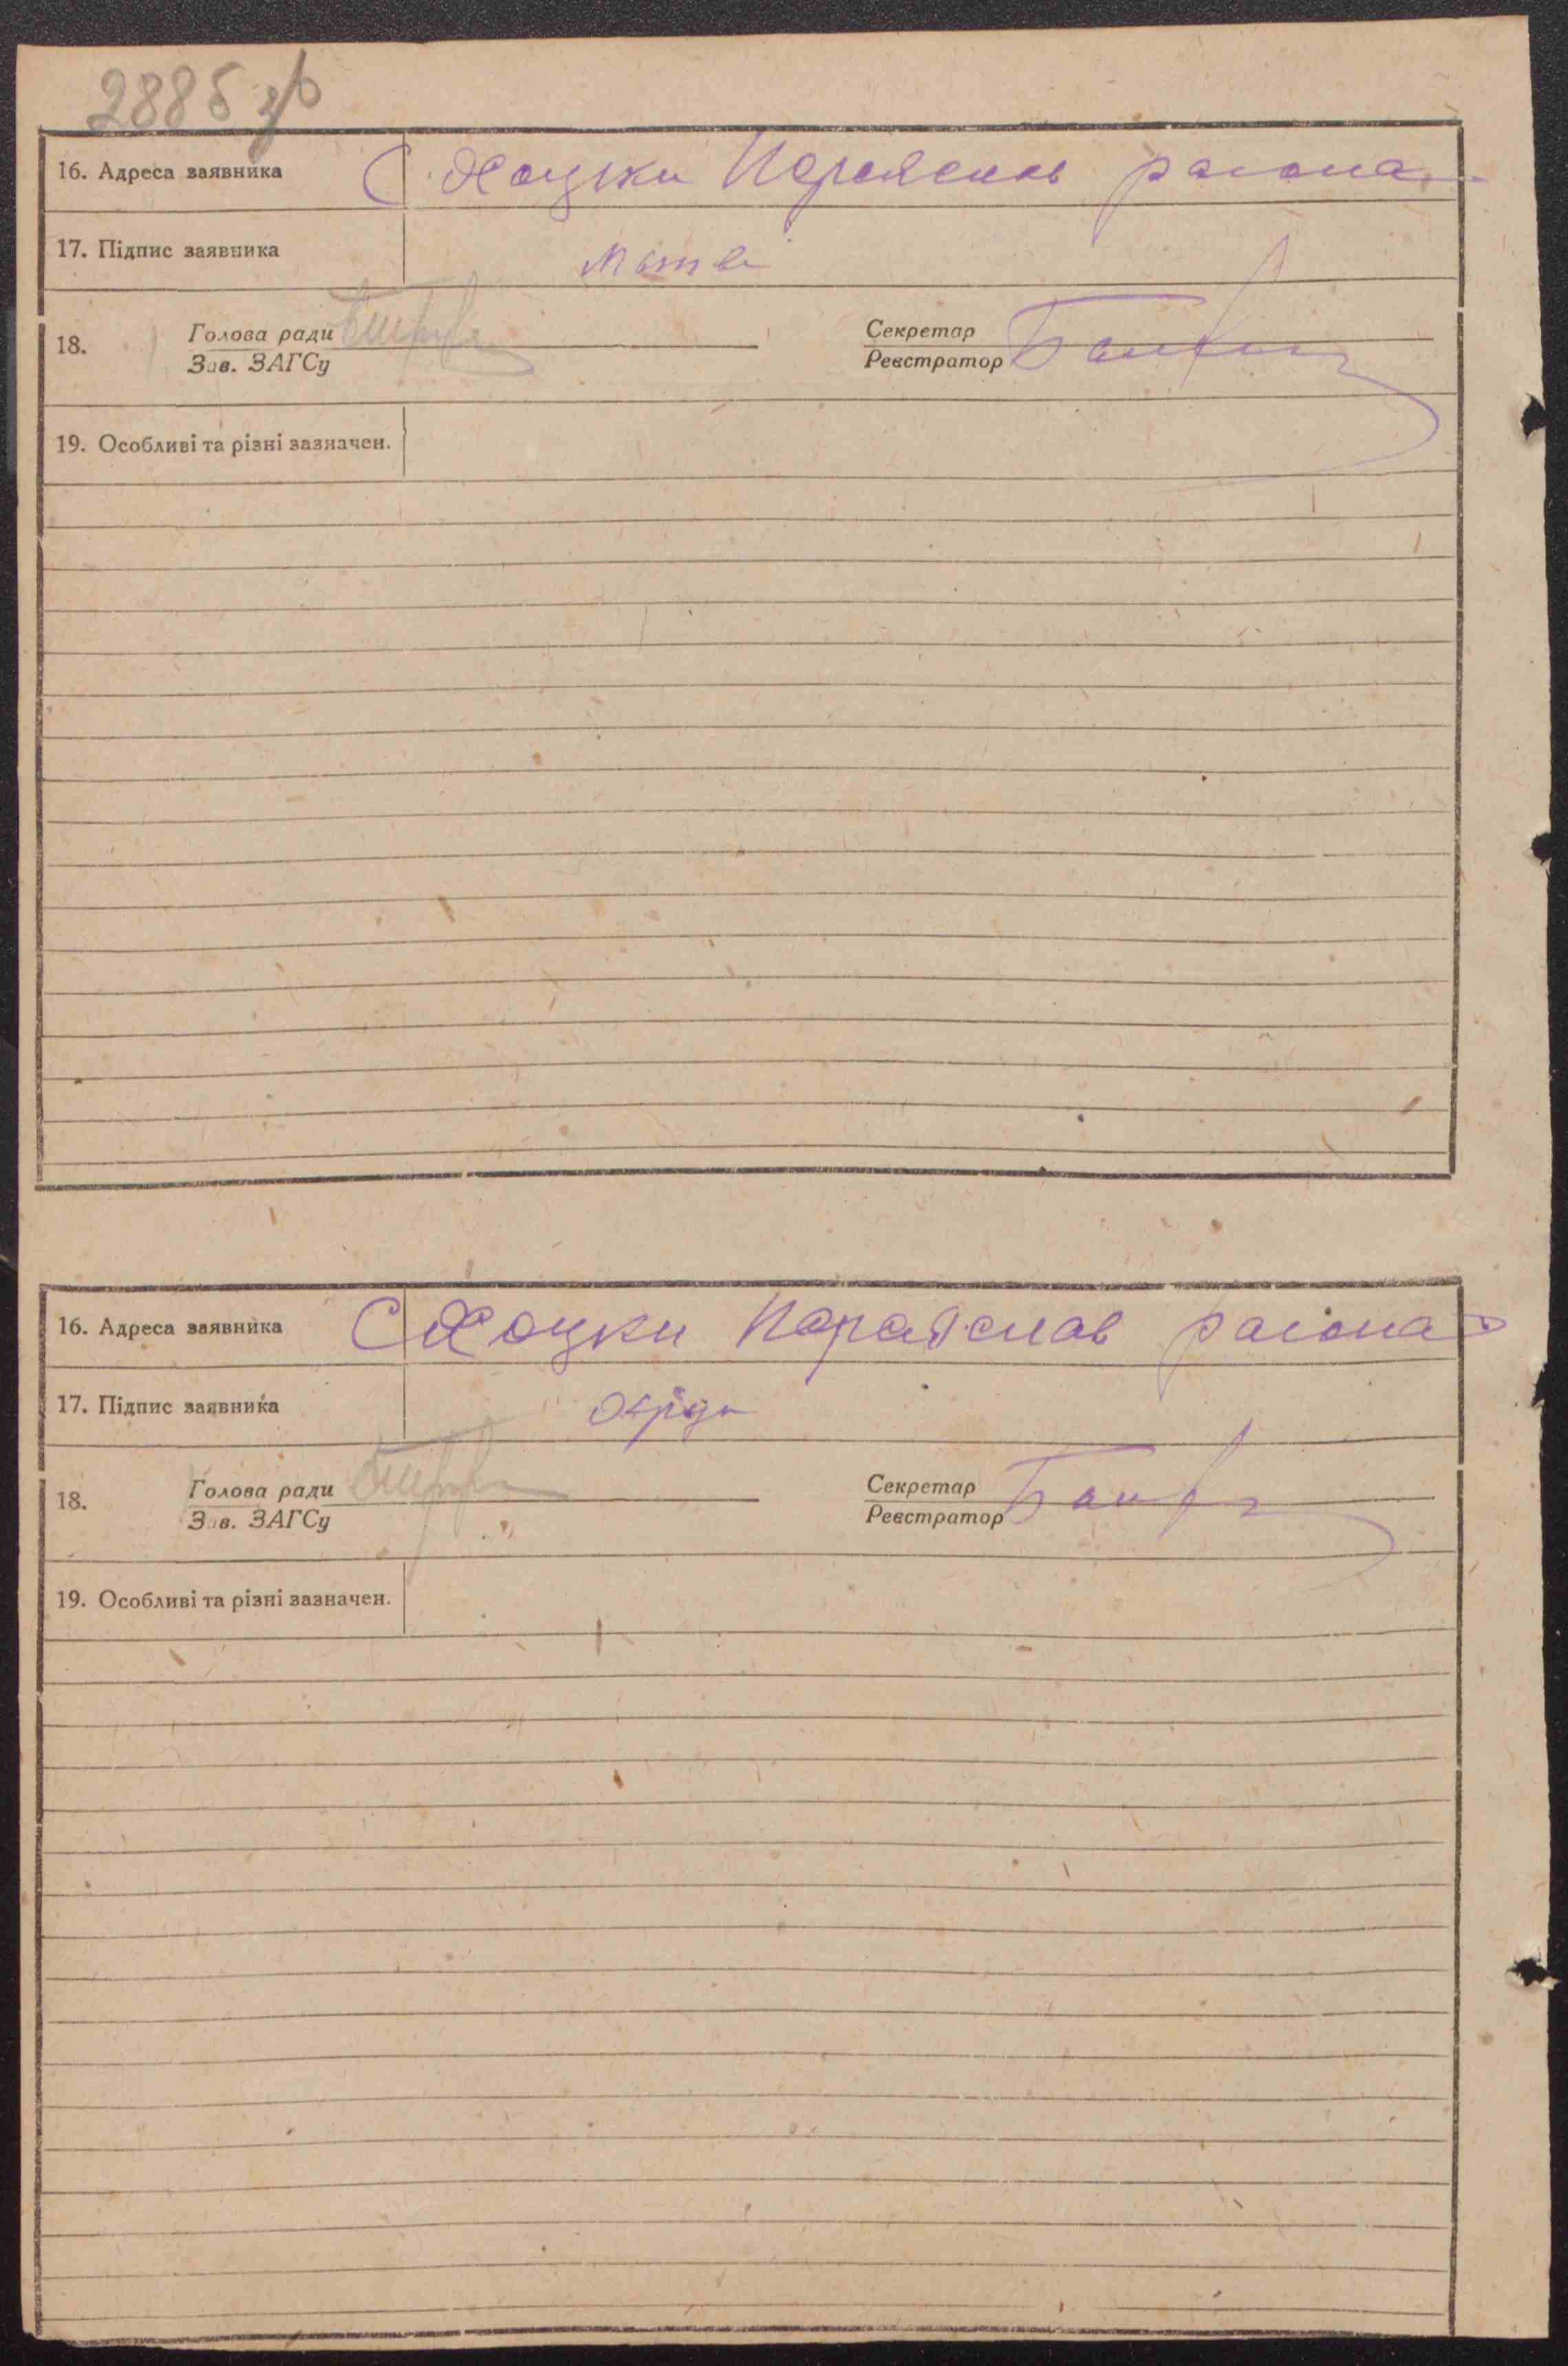 2885 зв
16. Адреса заявника С Хоцки Переяслав района
17. Підпис заявника
18. Голова ради Секретар
Зав. ЗАГСу Реєстратор
19. Особливі та різні зазначен.
16. Адреса заявника С Хоцки Параяслав района
17. Підпис заявника
18. Голова ради Секретар
Зав. ЗАГСу Реєстратор
19. Особливі та різні зазначен.